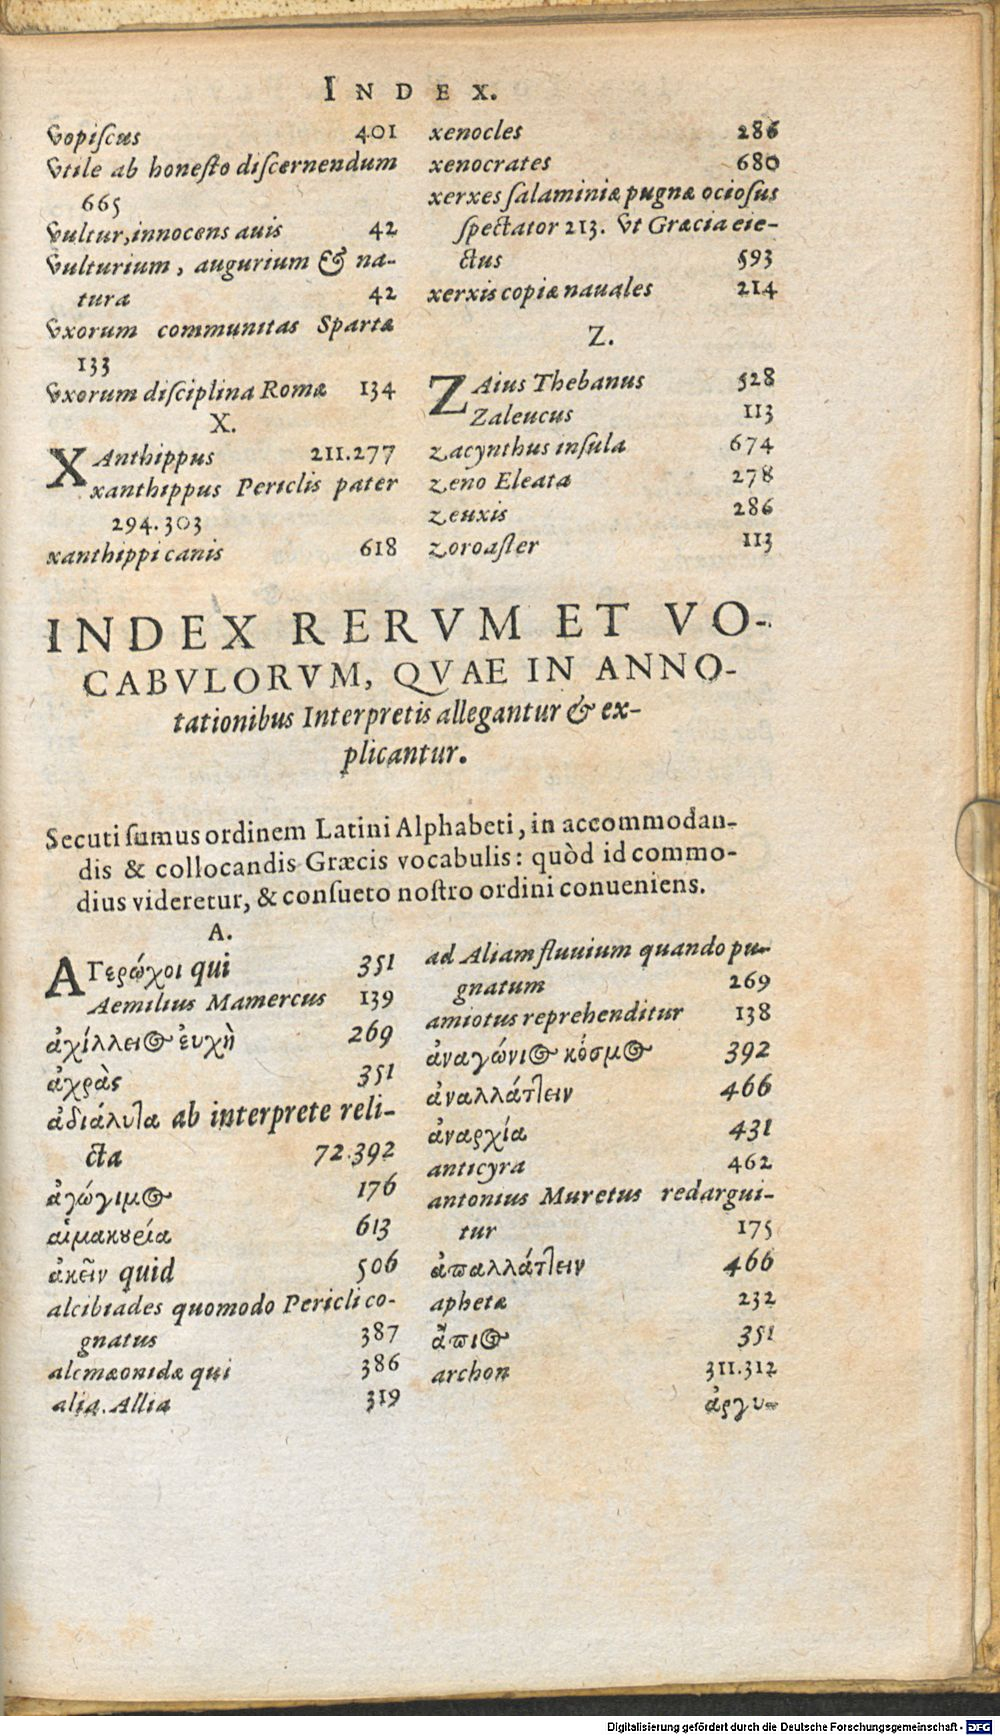 INDEX.
vopiſcus 401
vtile ab honeſto diſcernendum
665
vultur, innocens auis 42
vulturium, augurium & na-
tura 42
vxorum communitas Spartæ
133
vxorum diſciplina Romæ 134
X.
XAnthippus 211.277
xanthippus Periclis pater
294.303
xanthippi canis 618
xenocles 286
xenocrates 680
xerxes ſalaminiæ pugnæ ocioſus
ſpectator 213. vt Græcia eie-
ctus 593
xerxis copiæ nauales 214
Z.
ZAius Thebanus 528
Zaleucus 113
zacynthus inſula 674
zeno Eleata 278
zeuxis 286
zoroaſter 113
INDEX RERVM ET VO-
CABVLORVM, QVAE IN ANNO-
tationibus Interpretis allegantur & ex-
plicantur.
Secuti ſumus ordinem Latini Alphabeti, in accommodan-
dis & collocandis Græcis vocabulis: quòd id commo-
dius videretur, & conſueto noſtro ordini conueniens.
A.
ΑΓερώχοι qui 351
Aemilius Mamercus 139
ἀχίλλειος ἐυχὴ 269
ἀχρὰς 351
ἀδιάλυτα ab interprete reli-
cta 72.392
ἀγώγιμος 176
αἱμακουρία 613
ἀκεῖν quid 506
alcibiades quomodo Pericli co-
gnatus 387
alcmæonidæ qui 386
alia. Allia 319
ad Aliam fluuium quando pu-
gnatum 269
amiotus reprehenditur 138
ἀναγώνιος κόσμος 392
ἀναλλάττειν 466
ἀναρχία 431
anticyra 462
antonius Muretus redargui-
tur 175
ἀπαλλάττειν 466
aphetæ 232
ἄπιος 351
archon 311.312
ἀργυ-
Digitalisierung gefördert durch die Deutsche Forschungsgemeinschaft - DFG